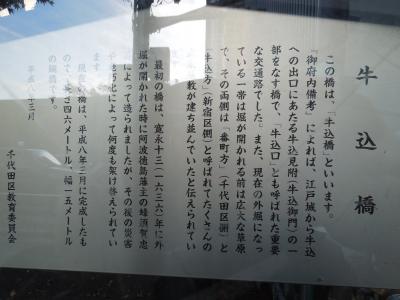 牛込橋
この橋は、「牛込橋」といいます。
『御府内備考』によれば、江戸城から牛込
への出口にあたる牛込見附(牛込御門)の一
部をなす橋で、「牛込口」とも呼ばれた重要
な交通路でした。また、現在の外堀になっ
ている一帯は堀が開かれる前は広大な草原
で、その両側は「番町方」(千代田区側)と
牛込方」(新宿区側)と呼ばれてたくさんの
敷が建ち並んでいたと伝えられてい
最初の橋は、寛永十三(一六三六)年に外
堀が開かれた時に阿波徳島藩主の蜂須賀忠
によって造られましたが、その後の災害
によって何度も架け替えられてい
ます
現在の橋は、平成八年三月に完成したも
ので、長さ四六メートル、幅一五メートル
の鋼橋です。
平成八年三月
千代田区教育委員会